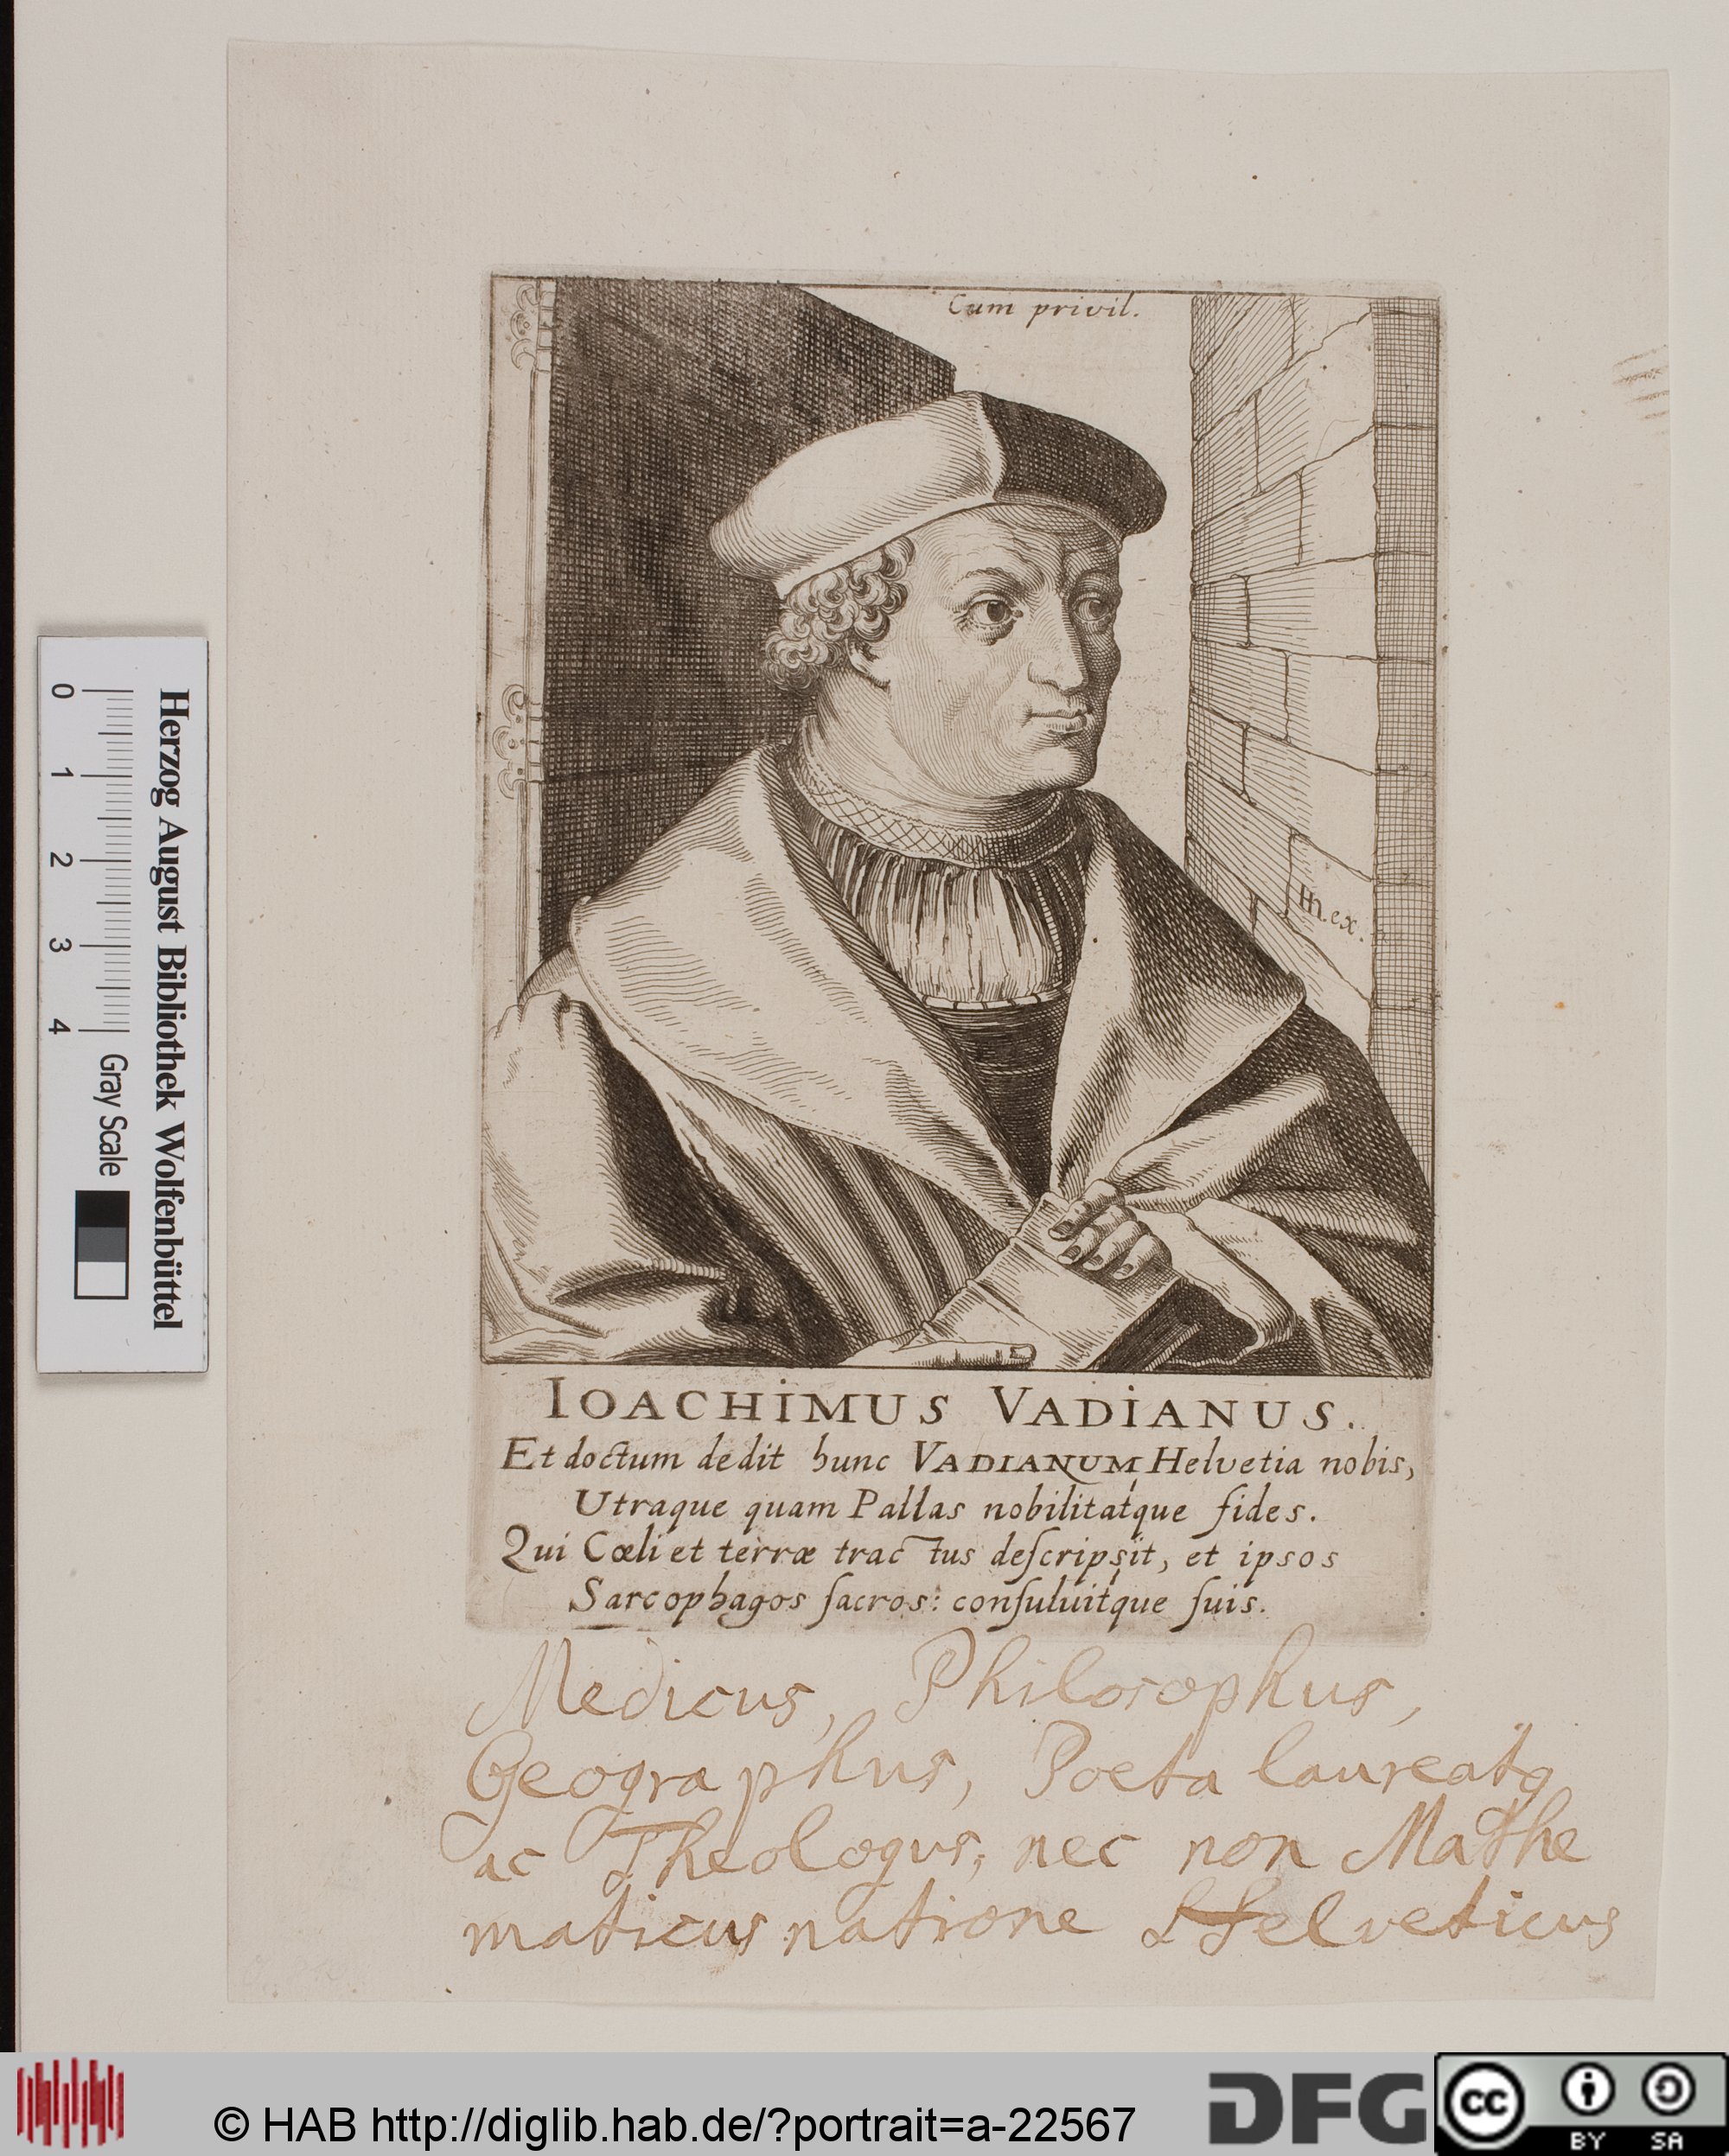 Cum privil.
HH. ex.
IOACHIMUS VADIANUS.
Et doctum dedit hunc VADIANUM Helvetia nobis,
Utraque quam Pallas nobilitatque fides.
Qui Cœli et terræ tractus deſcripsit, et ipsos
Sarcophagos ſacros: conſuluitque ſuis.
Medicus, Philosophus,
Geographus, Poeta laureatꝯ
ac Theologus, nec non Mathe
maticus natione Helveticus
Herzog August Bibliothek Wolfenbüttel
0 1 2 3 4 Gray Scale
© HAB http://diglib.hab.de/?portrait=a-22567
DFG
cc BY SA